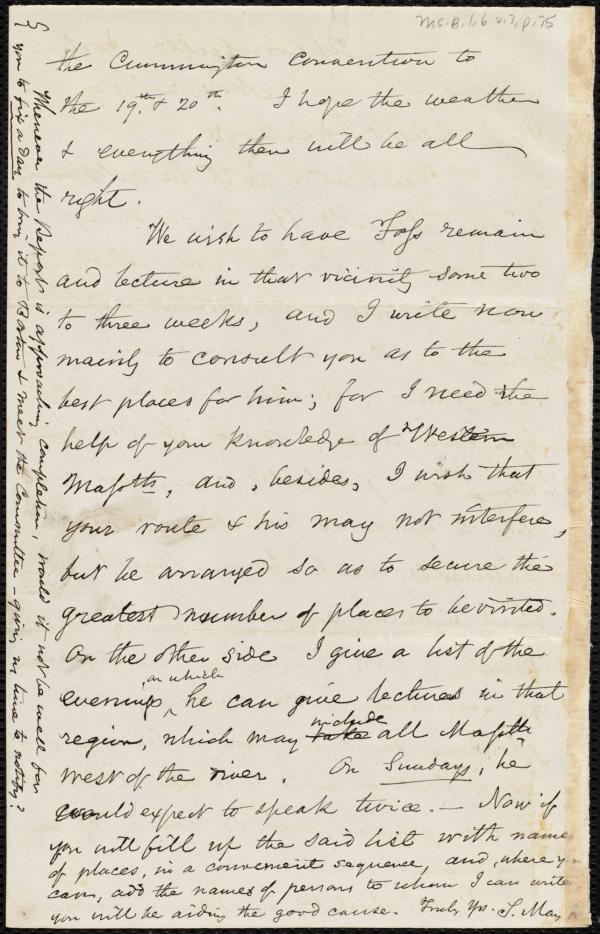 Ms. B. 1. 6 v. 7, p. 75
the Cummington Convention to
the 19th & 20th. I hope the weather
& everything then will be all
right.
We wish to have Foss remain
and lecture in that vicinity some two
to three weeks, and I write now
mainly to consult you as to the
best places for him; for I need the
help of your knowledge of Western
Massttts, and, besides, I wish that
your route & his may not interfere,
but be arranged so as to secure the
greatest number of places to be visited.
On the other side I give a list of the
evenings, on which he can give lectures in that
region, which may take include all Masstts
west of the river. On Sundays, he
would expect to speak twice. — Now if
you will fill up the said list with names
of places, in a convenient sequence, and, where you
can, add the names of persons to whom I can write
you will be aiding the good cause. Truly Yrs. S. May
Whenever the Report is approaching completion, would it not be well for
you to fix a day to bring it to Boston & meet the Committee – giving us time to notify?